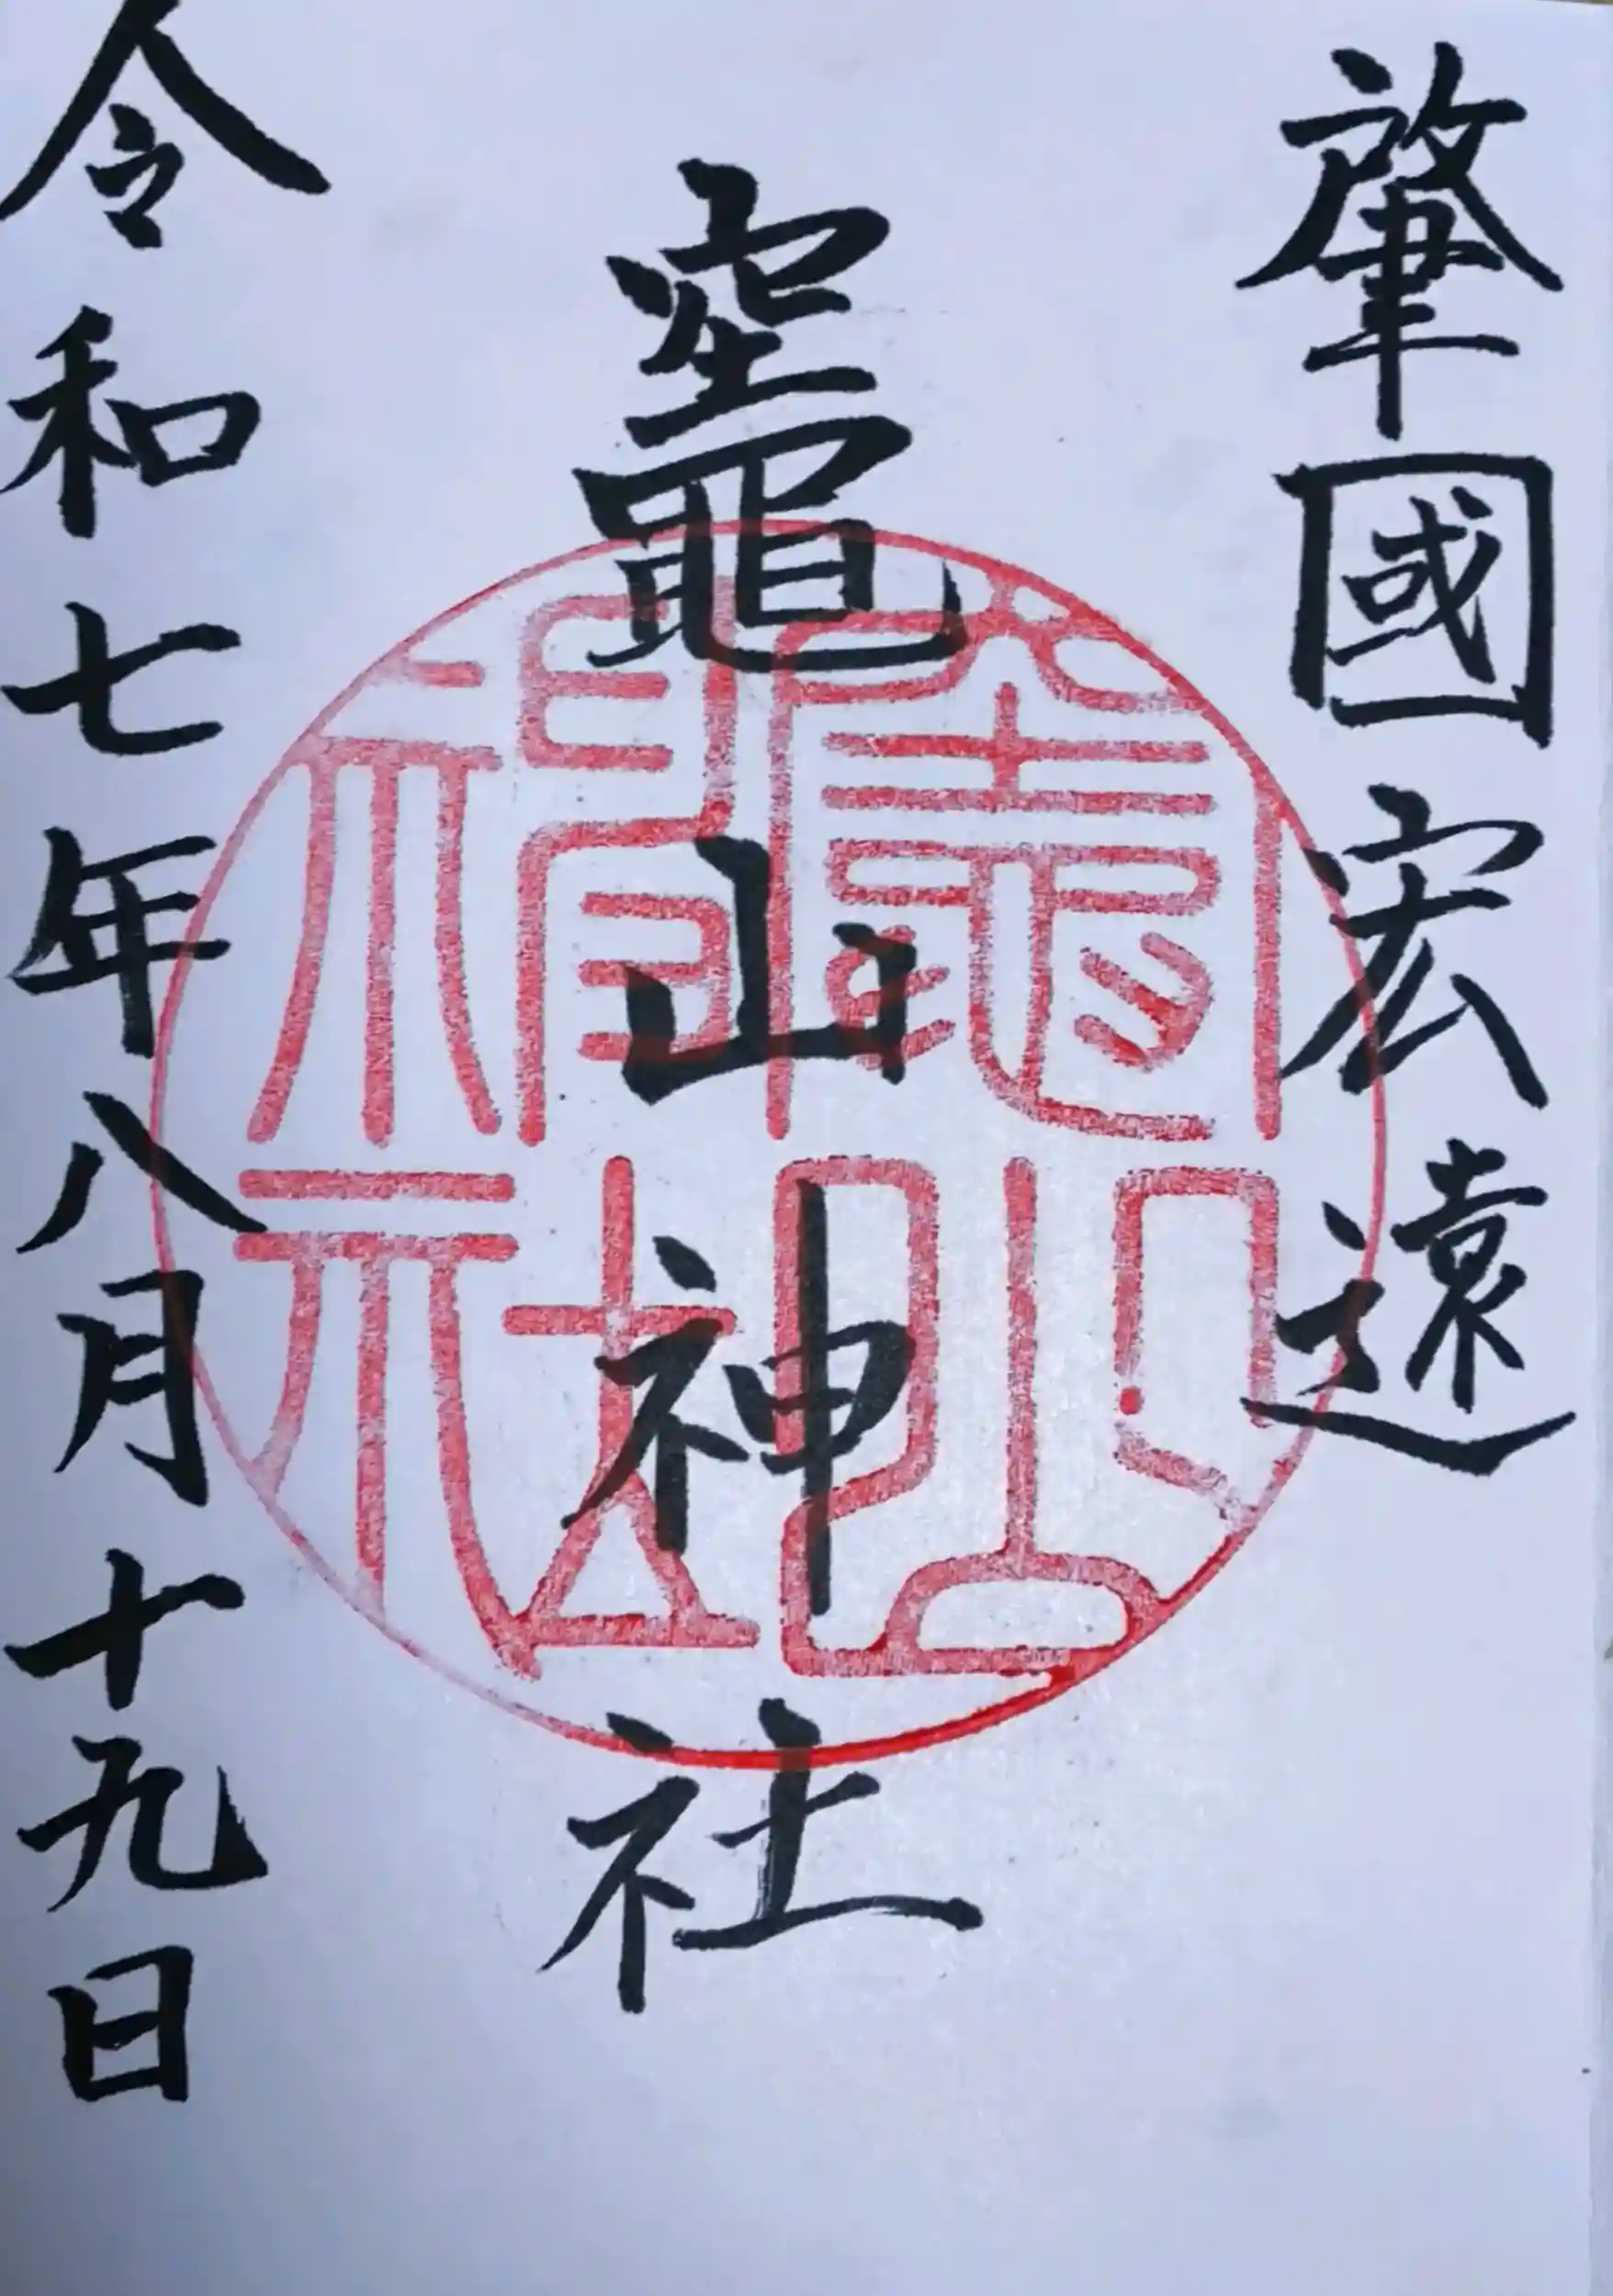 肇國宏遠
竈山神社
令和七年八月十九日
竈山
神社